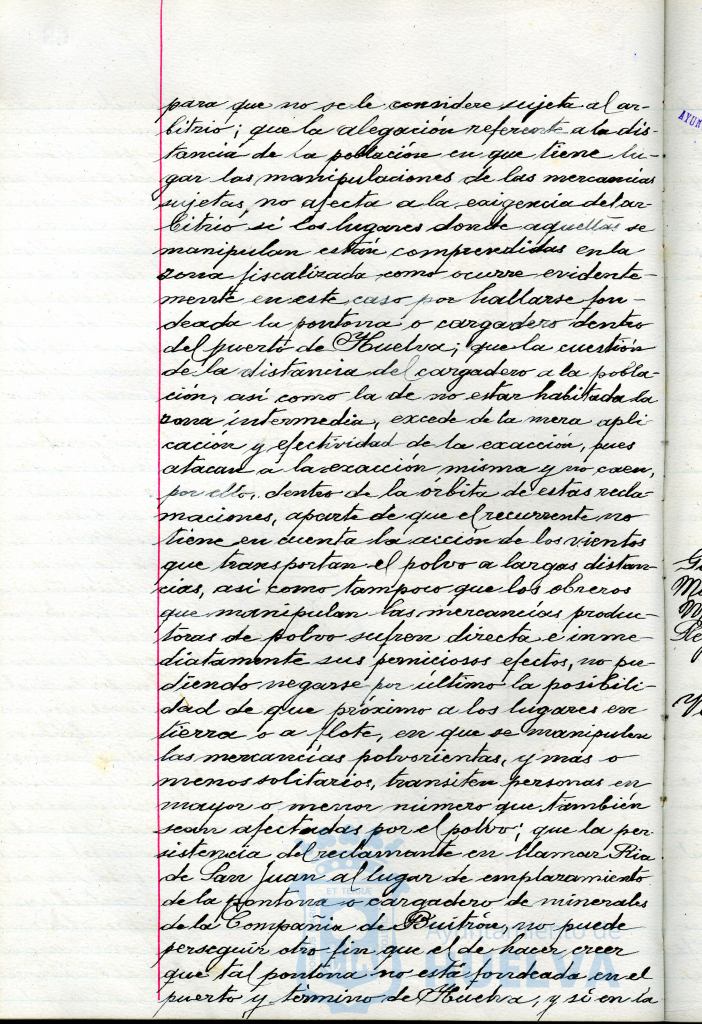 para que no se le considere sujeta al ar-
bitrio; que la alegación referente a la dis-
tancia de la población en que tiene lu-
gar las manipulaciones de las mercancías
sujetas, no afecta a la exigencia del ar-
bitrio si los lugares donde aquellas se
manipulan están comprendidas en la
zona fiscalizada como ocurre evidente-
mente en este caso por hallarse fon-
deada la pontona o cargadero dentro
del puerto de Huelva; que la cuestión
de la distancia del cargadero a la pobla-
ción, así como la de no estar habitada la
zona intermedia, excede de la mera apli
cación y efectividad de la exacción, pues
atacan a la exacción misma y no caen,
por ello, dentro de la órbita de estas recla-
maciones, aparte de que el recurrente no
tiene en cuenta la acción de los vientos
que transportan el polvo a largas distan-
cias, así como tampoco que los obreros
que manipulan las mercancías produc-
toras de polvo sufren directa e inme-
diatamente sus perniciosos efectos, no pu-
diendo negarse por último la posibili-
dad de que próximo a los lugares en
tierra o a flote, en que se manipulen
las mercancías polvorientas, y mas o
menos solitarios, transiten personas en
mayor o menor número que también
sean afectadas por el polvo; que la per-
sistencia del reclamante en llamar Ria
de San Juan al lugar de emplazamiento
de la pontona o cargadero de minerales
de la Compañia de Buitrón, no puede
perseguir otro fin que el de hacer creer
que tal pontona no está fondeada en el
puerto y término de Huelva, y si en la
ET TERRÆ
Ayuntamiento de
HUELVA
AYUN